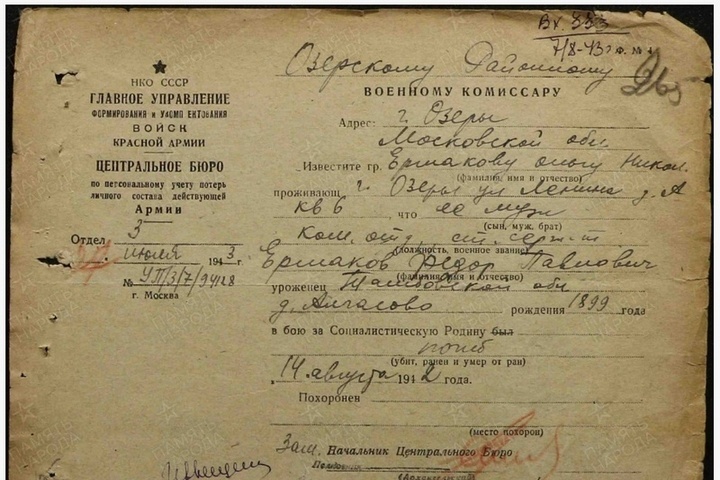 Вх. 333
7/8-43 г. Ф. № 4
Озерскому Районному
ВОЕННОМУ КОМИССАРУ
НКО СССР
ГЛАВНОЕ УПРАВЛЕНИЕ
ФОРМИРОВАНИЯ И УКОМПЛЕКТОВАНИЯ
ВОЙСК
КРАСНОЙ АРМИИ
ЦЕНТРАЛЬНОЕ БЮРО
по персональному учету потерь
личного состава действующей
Армии
Отдел 3
июля 1943 г.
№ УП/3/7/94128
г. Москва
Адрес: г. Озеры
Московской обл.
Известите гр. Ермакову Ольгу Никол.
(фамилия, имя и отчество)
проживающ. г. Озеры ул Ленина д. А
кв 6, что ее муж
(сын, муж, брат)
ком. отд. ст. серж-т
(должность, военное звание)
Ермаков Федор Павлович
(фамилия, имя и отчество)
уроженец Тамбовской обл
д. Алгасово рождения 1899 года
в бою за Социалистическую Родину был
погиб
(убит, ранен и умер от ран)
14 августа 1942 года.
Похоронен
(место похорон)
Зам. Начальник Центрального Бюро